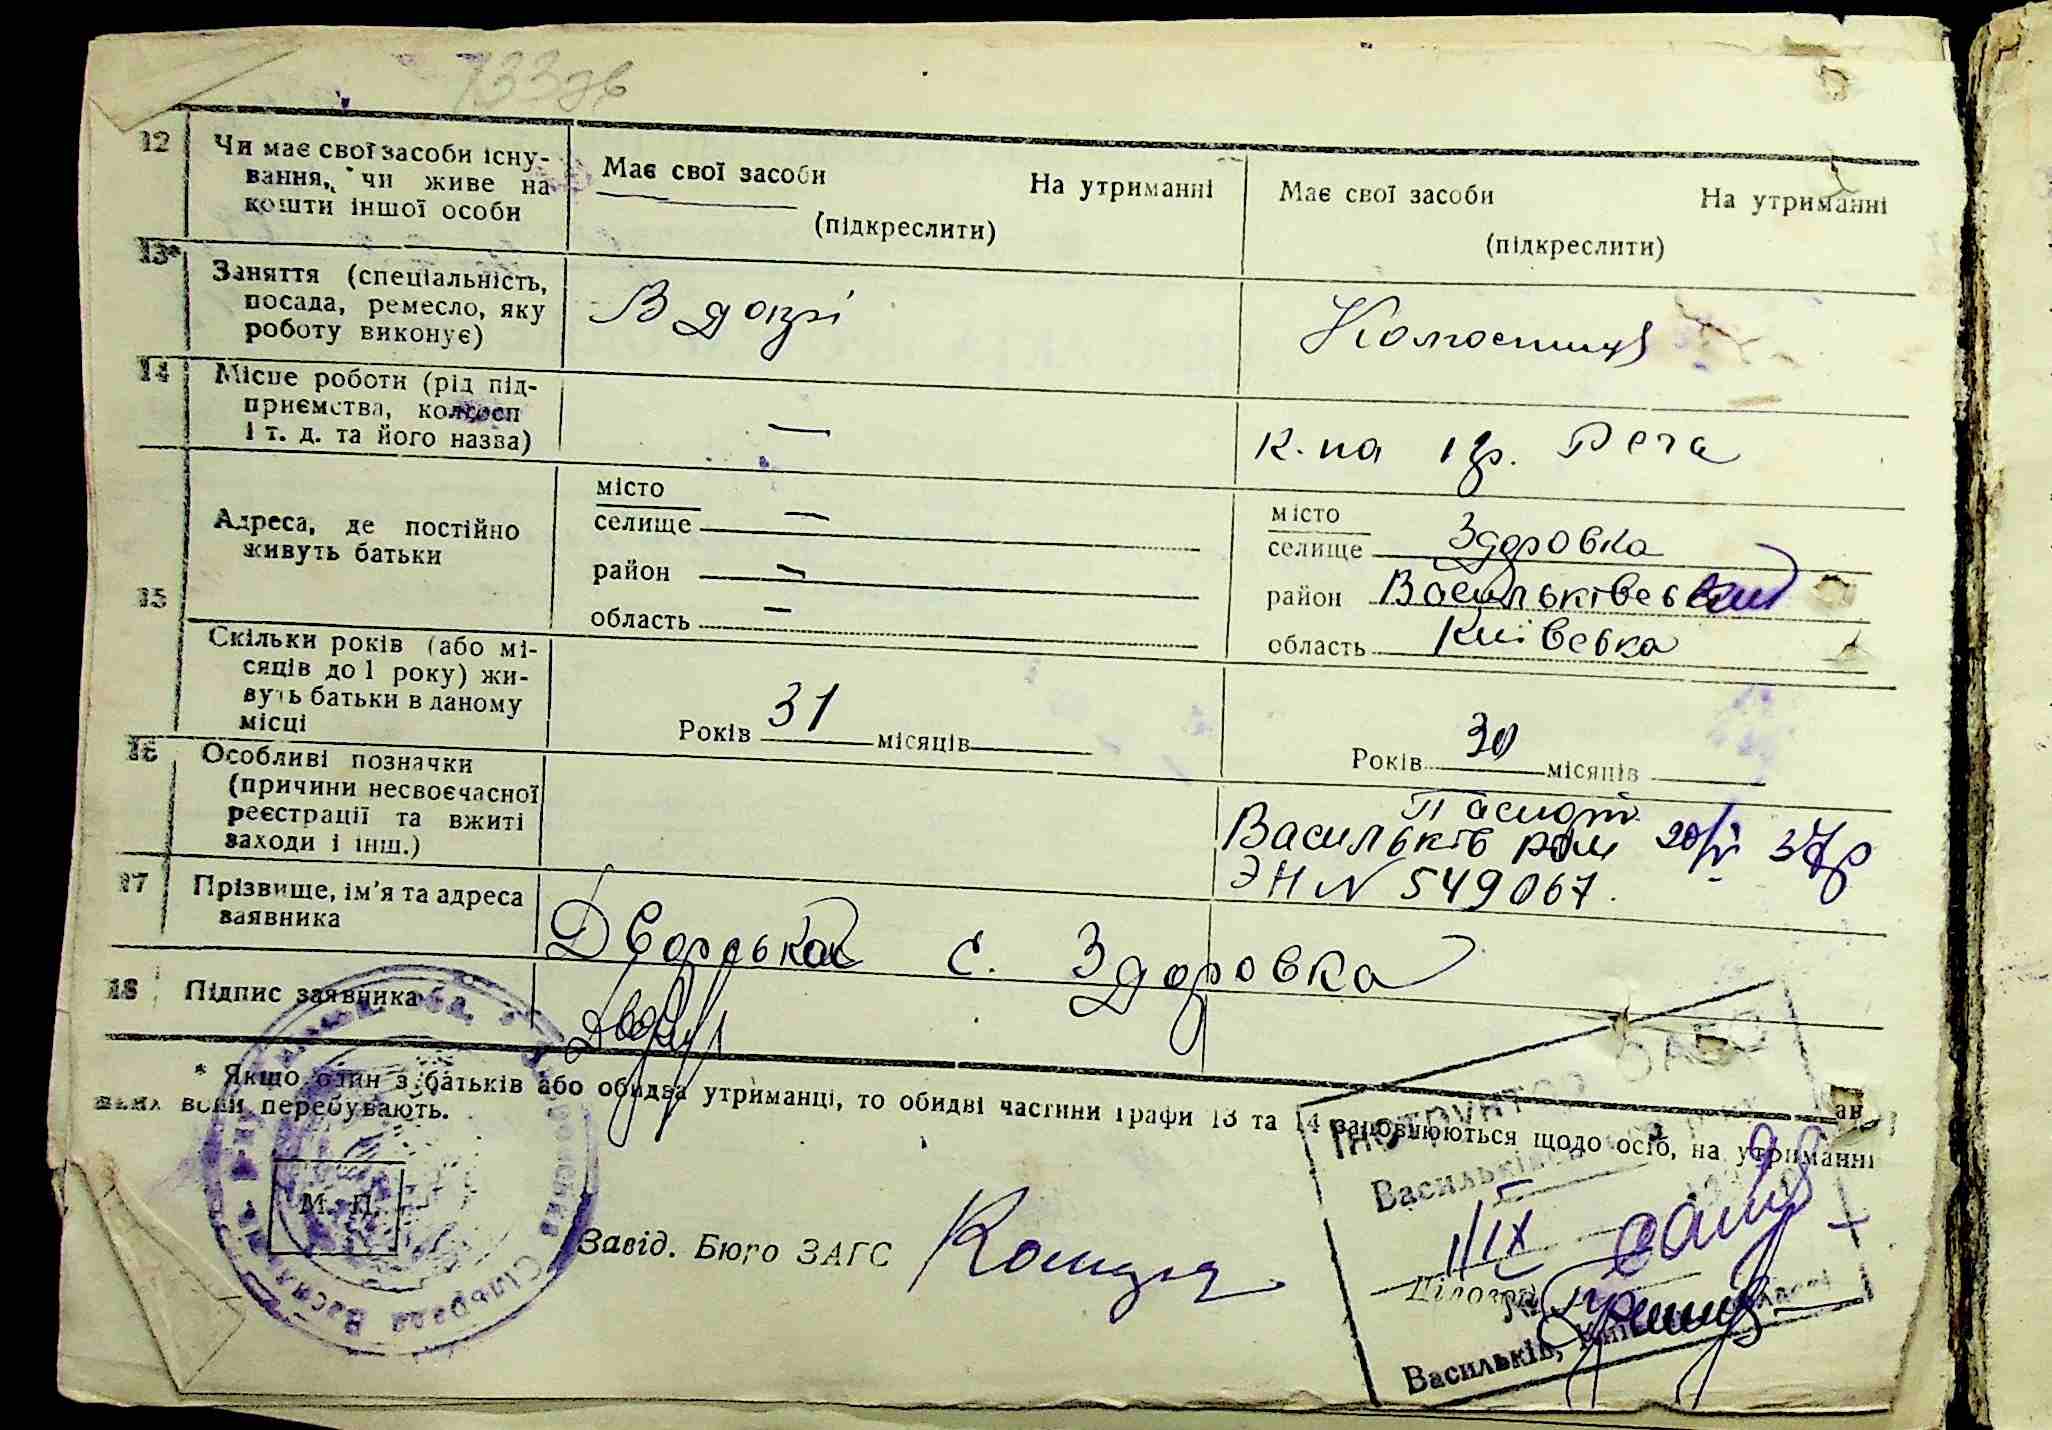 733дв
12 Чи має свої засоби існу-
вання, чи живе на
кошти іншої особи
Має свої засоби На утриманні
(підкреслити)
Має свої засоби На утриманні
(підкреслити)
13* Заняття (спеціальність,
посада, ремесло, яку
роботу виконує)
Колгоспниця
14 Місце роботи (рід під-
приємства, колгосп
і т. д. та його назва)
—
к-па 1 гр.
15
Адреса, де постійно
живуть батьки
місто
селище —
район —
область —
місто
селище Здоровка
район Васильківський
область Київська
Скільки років (або мі-
сяців до 1 року) жи-
вуть батьки в даному
місці
Років 31 місяців
Років 30 місяців
16 Особливі позначки
(причини несвоєчасної
реєстрації та вжиті
заходи і інш.)
Паспорт
Васильків
ЭН N 549067
17 Прізвище, ім'я та адреса
заявника
Дворська с. Здоровка
18 Підпис заявника
* Якщо один з батьків або обидва утриманці, то обидві частини графи 13 та 14 заповнюються щодо осіб, на утриманні
яких вони перебувають.
М. П.
Завід. Бюро ЗАГС
Діловод
Сільрада
Васильків,